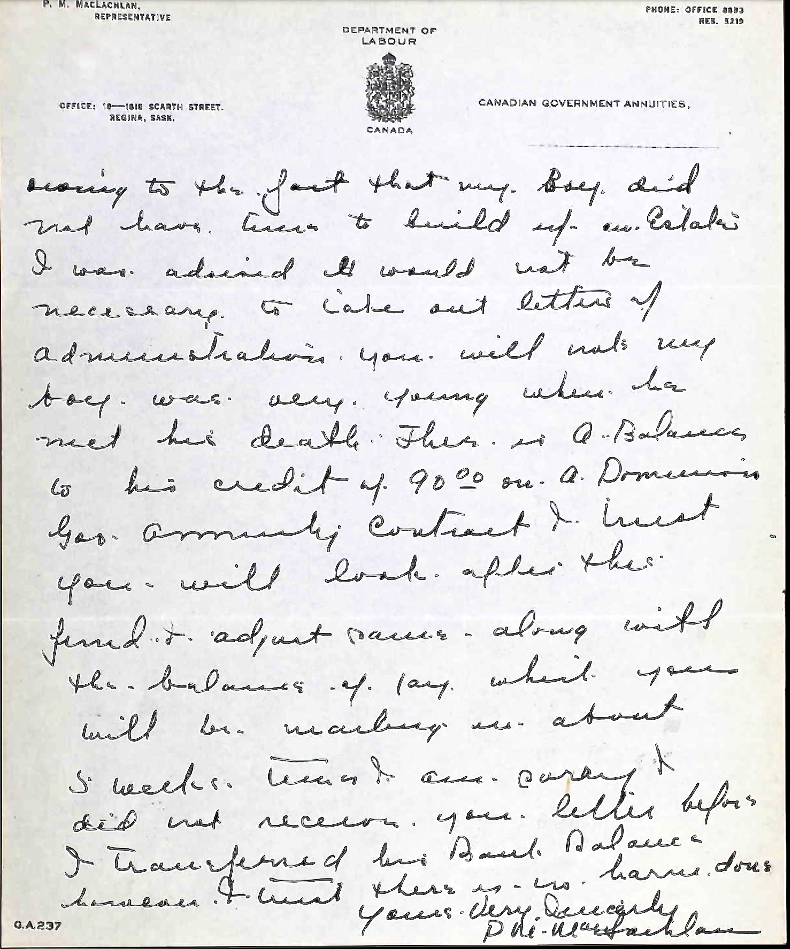 P. M. MACLACHLAN,
REPRESENTATIVE
PHONE: OFFICE 8893
RES. 5219
DEPARTMENT OF
LABOUR
OFFICE: 10—1816 SCARTH STREET.
REGINA, SASK.
CANADIAN GOVERNMENT ANNUITIES,
CANADA
owing to the fact that my Boy did
not have time to build up an Estate
I was advised it would not be
necessary to take out letters of
administration you will note my
boy was very young when he
met his death. There is a Balance
to his credit of 90.00 on a Dominion
Gov. Annuity Contract I trust
you will look after this
fund & adjust same along with
the balance of pay which you
will be mailing in about
5 weeks time I am sorry I
did not receive your letter before
I transferred his Bank Balance
however I trust there is no harm done
Yours Very Sincerely
P M MacLachlan
G.A.237